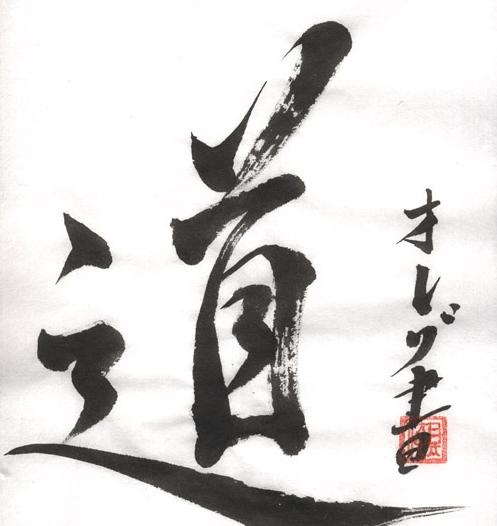 道
オレグ書